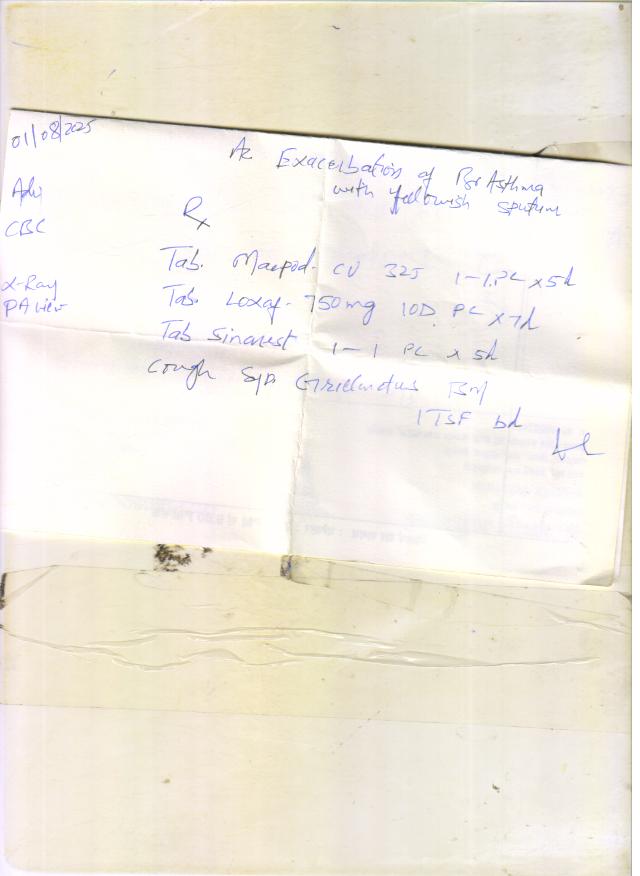 01/08/2025
Ac Exacerbation of Br Asthma
with yellowish sputum
Adv
Rx
CBC
Tab. Macpod. CV 325 1-1 PC x 5d
X-Ray
PA view
Tab. Loxof. 750mg 1OD PC x 7d
Tab Sinarest 1-1 PC x 5d
Cough Syp. Grilinctus
1 TSF bd